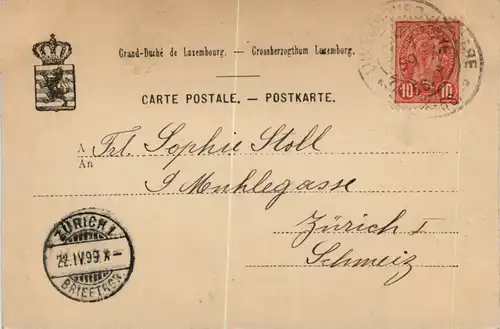 Grand-Duché de Luxembourg. - Grossherzogthum Luxemburg.
CARTE POSTALE. — POSTKARTE.
A
An
Frl. Sophie Stoll
9 Muhlegasse
Zürich I
Schweiz
10 10
ZÜRICH 1
22.IV.99.X-
BRIEFTRGR.